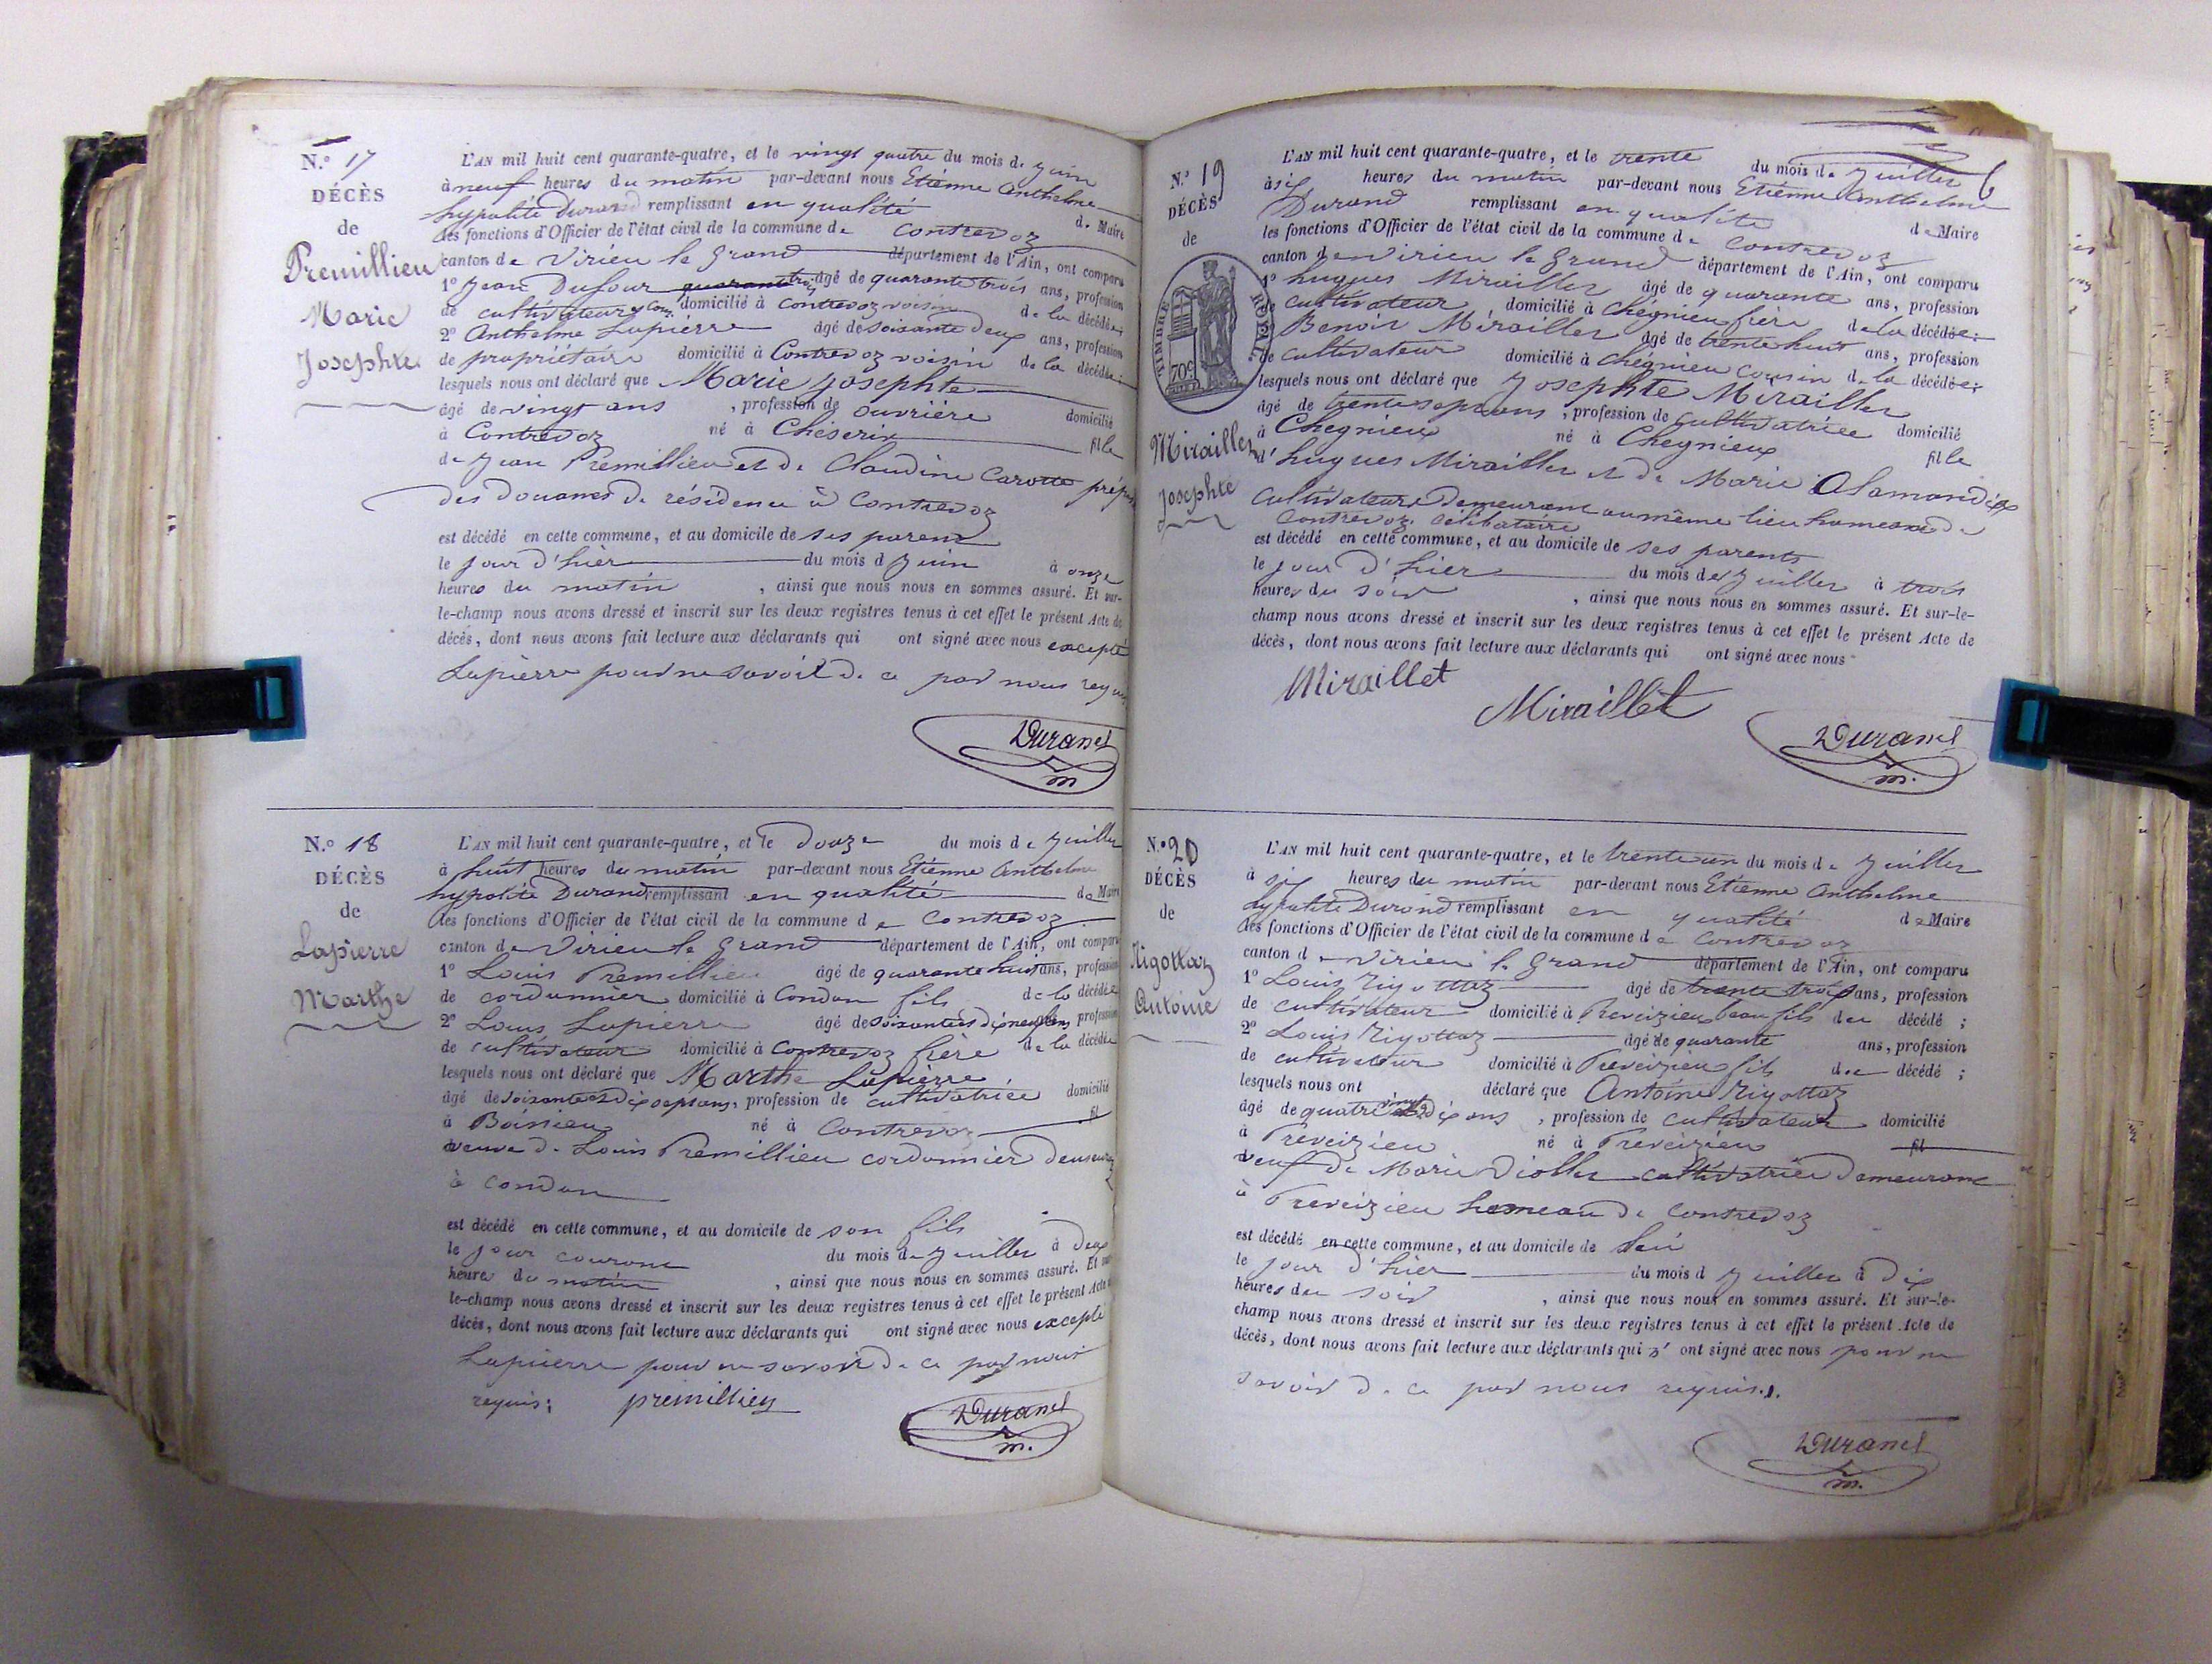 N.º 17
DÉCÈS
de
Premillieu
Marie
Josephte
L'AN mil huit cent quarante-quatre, et le vingt quatre du mois de Juin
à neuf heures du matin par-devant nous Etienne Anthelme
hypolite Durand remplissant en qualité de Maire
les fonctions d'Officier de l'état civil de la commune de Contrevoz
canton de Virieu le grand département de l'Ain, ont comparu
1º Jean Dufour âgé de quarante trois ans, profession
de cultivateur domicilié à Contrevoz voisin de la décédée;
2º Anthelme Lapierre âgé de soixante deux ans, profession
de propriétaire domicilié à Contrevoz voisin de la décédée;
lesquels nous ont déclaré que Marie Josephte
âgé de vingt ans , profession de ouvrière domicilié
à Contrevoz né à Cheserix fille
de Jean Premillieu et de Claudine Carotte
des douanes de résidence à Contrevoz
est décédé en cette commune, et au domicile de ses parens
le jour d'hier du mois d Juin à onze
heures du matin , ainsi que nous nous en sommes assuré. Et sur-
le-champ nous avons dressé et inscrit sur les deux registres tenus à cet effet le présent Acte de
décès, dont nous avons fait lecture aux déclarants qui ont signé avec nous excepté
Lapierre pour ne savoir de ce par nous requis
Durand
m.
N.º 18
DÉCÈS
de
Lapierre
Marthe
L'AN mil huit cent quarante-quatre, et le douze du mois de Juillet
à huit heures du matin par-devant nous Etienne Anthelme
hypolite Durand remplissant en qualité de Maire
les fonctions d'Officier de l'état civil de la commune de Contrevoz
canton de Virieu le grand département de l'Ain, ont comparu
1º Louis Premillieu âgé de quarante huit ans, profession
de cordonnier domicilié à Condon fils de la décédée
2º Louis Lapierre âgé de soixante et dix neuf ans, profession
de cultivateur domicilié à Contrevoz frère de la décédée
lesquels nous ont déclaré que Marthe Lapierre
âgé de soixante et dix sept ans, profession de cultivatrice domicilié
à Boissieu né à Contrevoz fil
veuve de Louis Premillieu cordonnier demeurant
à Condon
est décédé en cette commune, et au domicile de son fils
le jour courant du mois de Juillet à deux
heures du matin , ainsi que nous nous en sommes assuré. Et sur-
le-champ nous avons dressé et inscrit sur les deux registres tenus à cet effet le présent Acte de
décès, dont nous avons fait lecture aux déclarants qui ont signé avec nous excepté
Lapierre pour ne savoir de ce par nous
requis; premillieu
Durand
m.
6
N.º 19
DÉCÈS
de
TIMBRE ROYAL
70c
Miraillet
Josephte
L'AN mil huit cent quarante-quatre, et le trente du mois de Juillet
à six heures du matin par-devant nous Etienne Anthelme
Durand remplissant en qualité de Maire
les fonctions d'Officier de l'état civil de la commune de Contrevoz
canton de Virieu le grand département de l'Ain, ont comparu
1º hugues Miraillet âgé de quarante ans, profession
de cultivateur domicilié à Chégnieu frère de la décédée;
Benoit Miraillet âgé de trente huit ans, profession
de cultivateur domicilié à chégnieu cousin de la décédée;
lesquels nous ont déclaré que Josephte Miraillet
âgé de trente sept ans , profession de cultivatrice domicilié
à Chegnieu né à Chegnieux fille
d'hugues Miraillet et de Marie
cultivateurs demeurant au même lieu hameau de
Contrevoz célibataire
est décédé en cette commune, et au domicile de ses parents
le jour d'hier du mois de Juillet à trois
heures du soir , ainsi que nous nous en sommes assuré. Et sur-le-
champ nous avons dressé et inscrit sur les deux registres tenus à cet effet le présent Acte de
décès, dont nous avons fait lecture aux déclarants qui ont signé avec nous
Miraillet
Miraillet
Durand
m.
N.º 20
DÉCÈS
de
Rigottaz
Antoine
L'AN mil huit cent quarante-quatre, et le trente un du mois de Juillet
à six heures du matin par-devant nous Etienne Anthelme
hypolite Durand remplissant en qualité de Maire
les fonctions d'Officier de l'état civil de la commune de Contrevoz
canton d Virieu le grand département de l'Ain, ont comparu
1º Louis Rigottaz âgé de trente trois ans, profession
de cultivateur domicilié à Preveizieu beau fils du décédé ;
2º Louis Rigottaz âgé de quarante ans, profession
de cultivateur domicilié à Preveizieu fils du décédé ;
lesquels nous ont déclaré que Antoine Rigottaz
âgé de quatre vingt dix ans , profession de cultivateur domicilié
à Preveizieu né à Preveizieu fil
veuf de Marie Diollet cultivatrice demeurant
à Preveizieu hameau de Contrevoz
est décédé en cette commune, et au domicile de
le jour d'hier du mois d Juillet à dix
heures du soir , ainsi que nous nous en sommes assuré. Et sur-le-
champ nous avons dressé et inscrit sur les deux registres tenus à cet effet le présent Acte de
décès, dont nous avons fait lecture aux déclarants qui n'ont signé avec nous pour ne
savoir de ce par nous requis.
Durand
m.